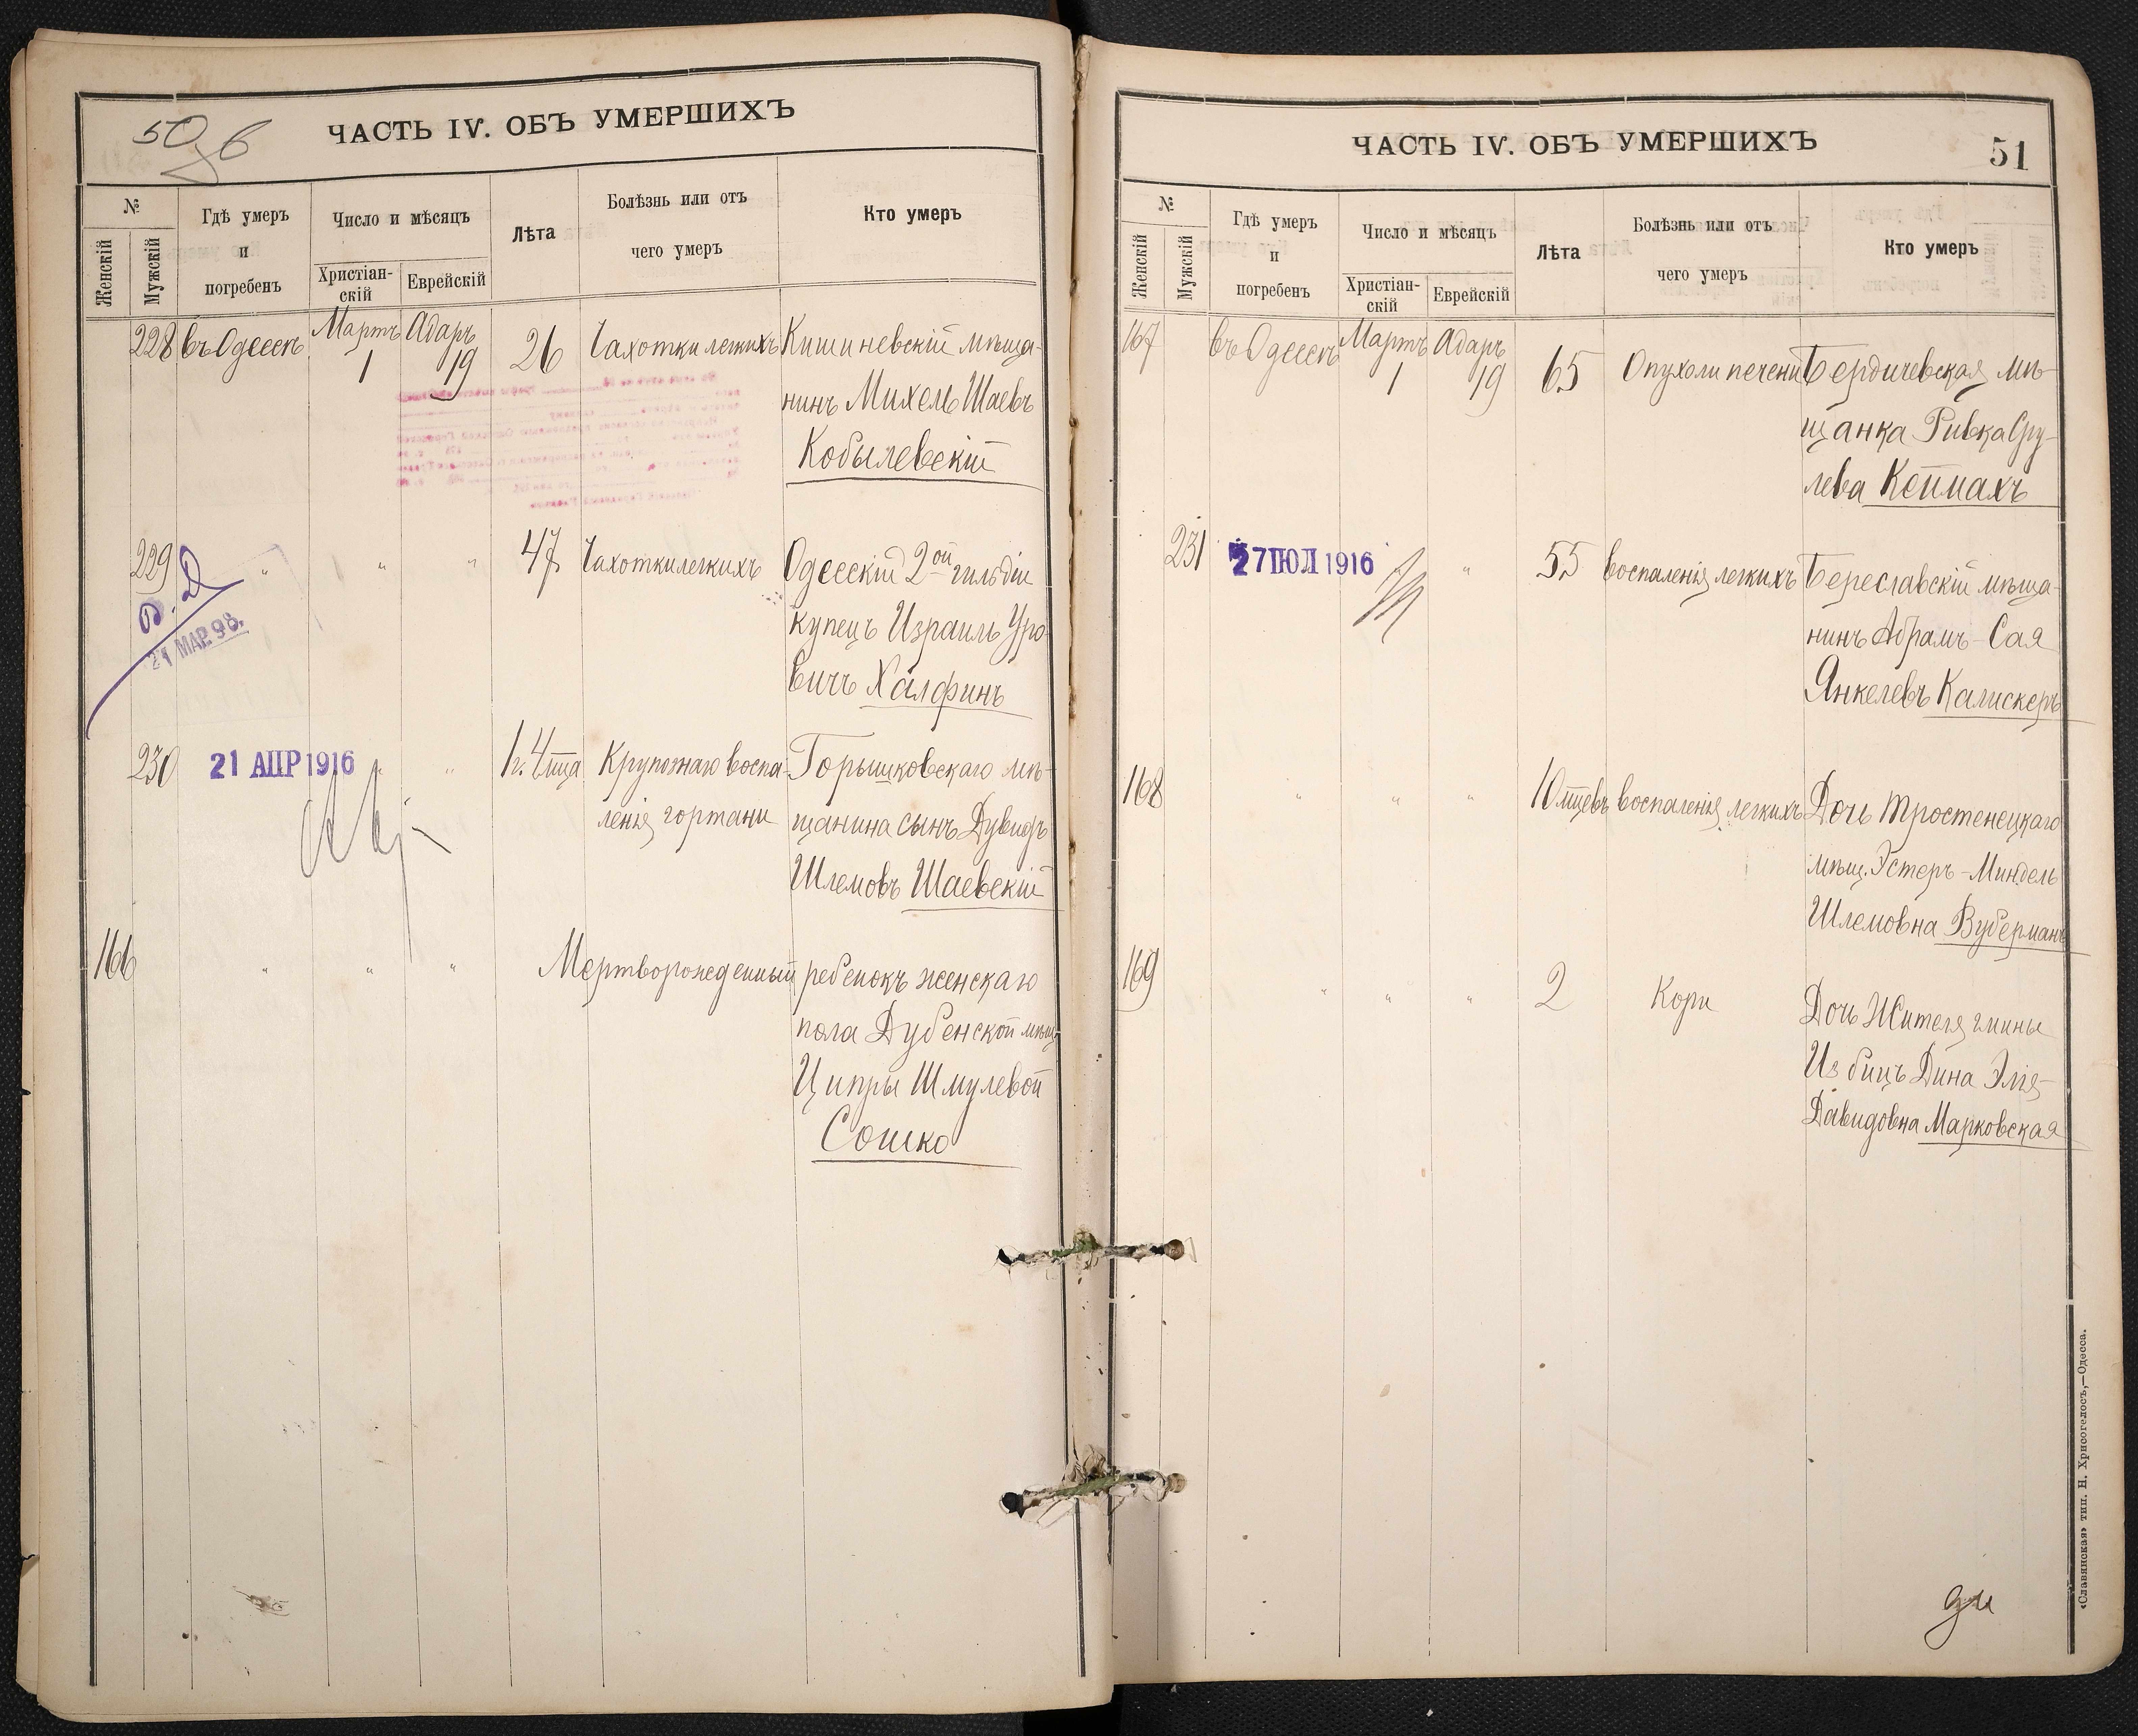 50
ЧАСТЬ IV. ОБЪ УМЕРШИХЪ
№
Женскій
Мужскій
Гдѣ умеръ
и
погребенъ
Число и мѣсяцъ
Христіан-
скій
Еврейскій
Лѣта
Болѣзнь или отъ
чего умеръ
Кто умеръ
228 въ Одессѣ Мартъ 1 Адаръ 19 26 Чахотки легкихъ Кишиневскій мѣща-
нинъ Михель Шаевъ
Кобылевскій
229 " " " 47 Чахотки легкихъ Одесскій 2ой гильдіи
купецъ Израиль Уро-
вичъ Халфинъ
21 МАР. 98.
230 21 АПР 1916 " 1 г. 4 мца Крупознаго воспа- Горышковскаго мѣ-
ленія гортани щанина сынъ Дувидъ
Шлемовъ Шаевскій
166 " " " Мертворожденный ребенокъ женскаго
пола Дубенской мѣщ.
Ципры Шмулевой
Сошко
ЧАСТЬ IV. ОБЪ УМЕРШИХЪ
51
№
Женскій
Мужскій
Гдѣ умеръ
и
погребенъ
Число и мѣсяцъ
Христіан-
скій
Еврейскій
Лѣта
Болѣзнь или отъ
чего умеръ
Кто умеръ
167 въ Одессѣ Мартъ 1 Адаръ 19 65 Опухоли печени Бердичевская мѣ-
щанка Ривка Сру-
лева Кеймахъ
231 27 ІЮЛ 1916 " 55 воспаленія легкихъ Береславскій мѣща-
нинъ Абрамъ-Сая
Янкелевъ Калискеръ
168 " " " 10 мцевъ воспаленія легкихъ Дочь Тростенецкаго
мѣщ. Эстеръ-Миндель
Шлемовна Вуберманъ
169 " " " 2 Кори Дочь Жителя гмины
Избицъ Дина Элія-
Давидовна Марковская
«Славянская» тип. Н. Хрисогелосъ,—Одесса.